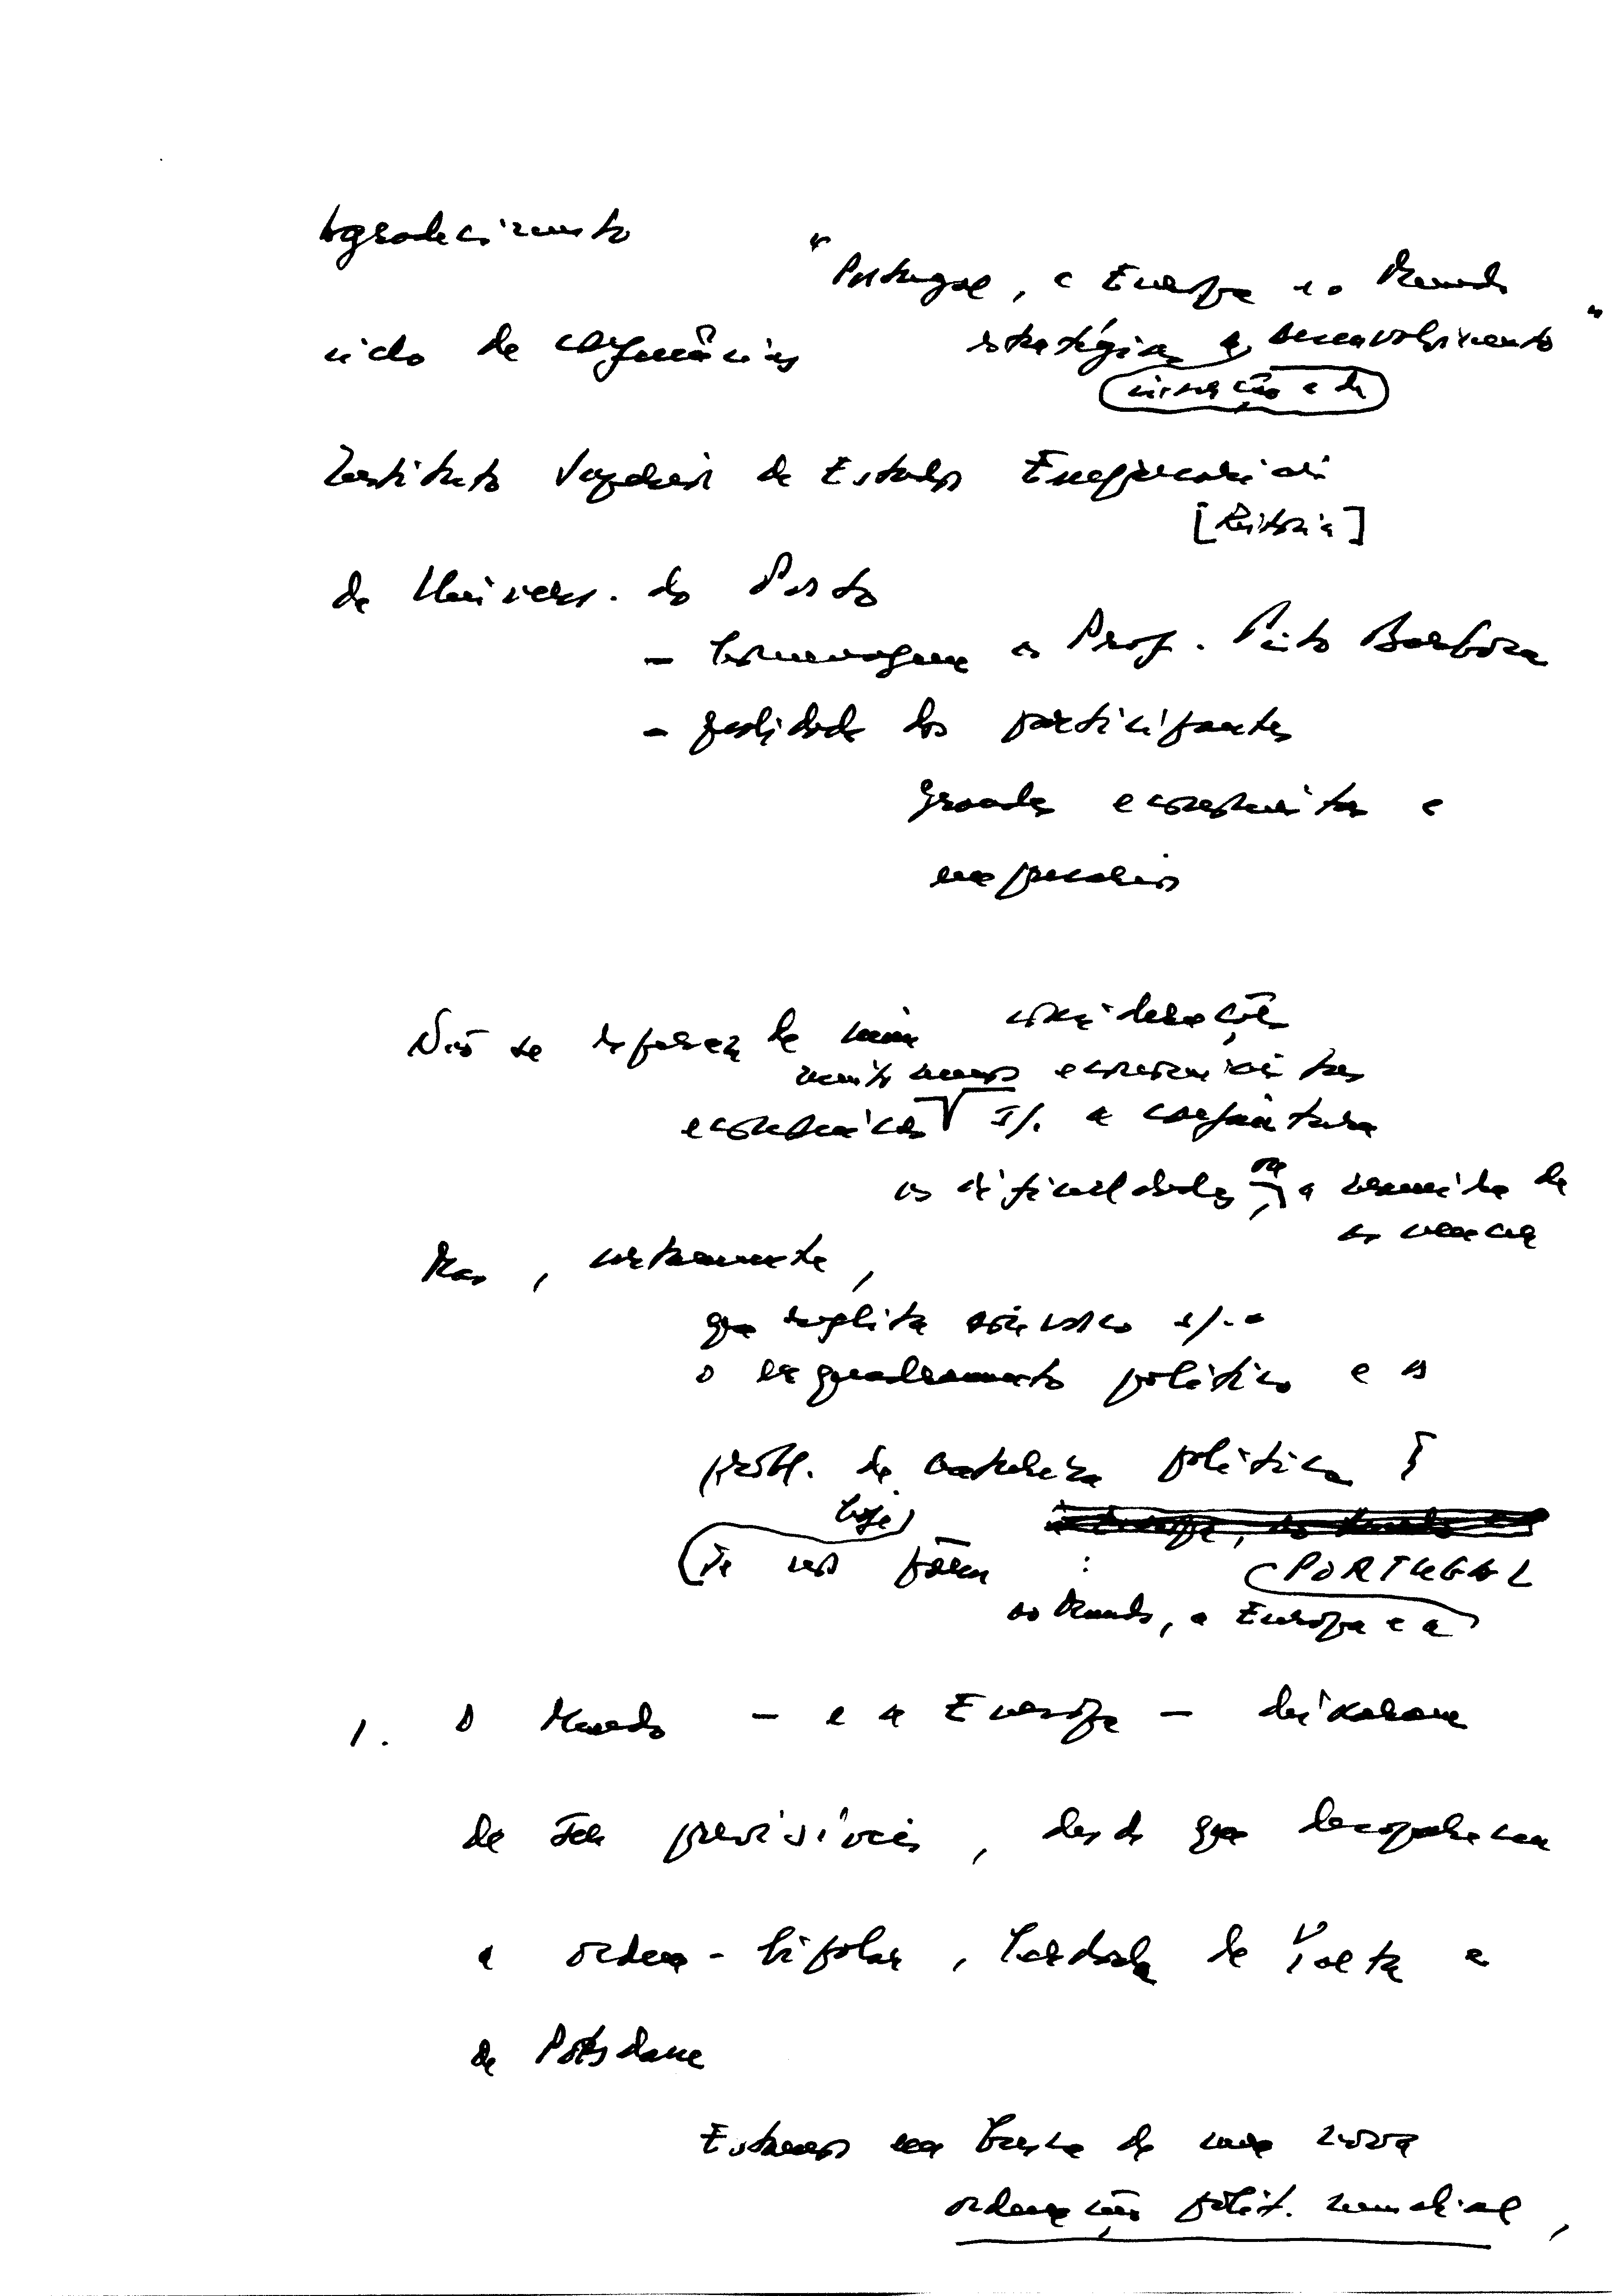 Agradecimento
"Portugal, a Europa e o Mundo
ciclo de conferências
estratégias de desenvolvimento"
inserção e de
Instituto Superior de Estudos Empresariais
[Reitoria]
da Univers. do Porto
- homenagem ao Prof. Pinto Barbosa
- qualidade dos participantes
grandes economistas e
empresários
Não se esperem de mim considerações
muito menos economicistas
económicas s/. a conjuntura
as dificuldades ou a maneira de
as vencer
Mas, certamente,
que reflita convosco s/. o
o enquadramento político e os
probl. de natureza política
hoje
se nos põem :
PORTUGAL
ao Mundo, à Europa e a
1. O Mundo - e a Europa - deixaram
de ser previsíveis, desde que desapareceu
a ordem - bipolar, herdada de Yalta e
de Potsdam
Estamos em busca de uma nova
ordenação polít. mundial,